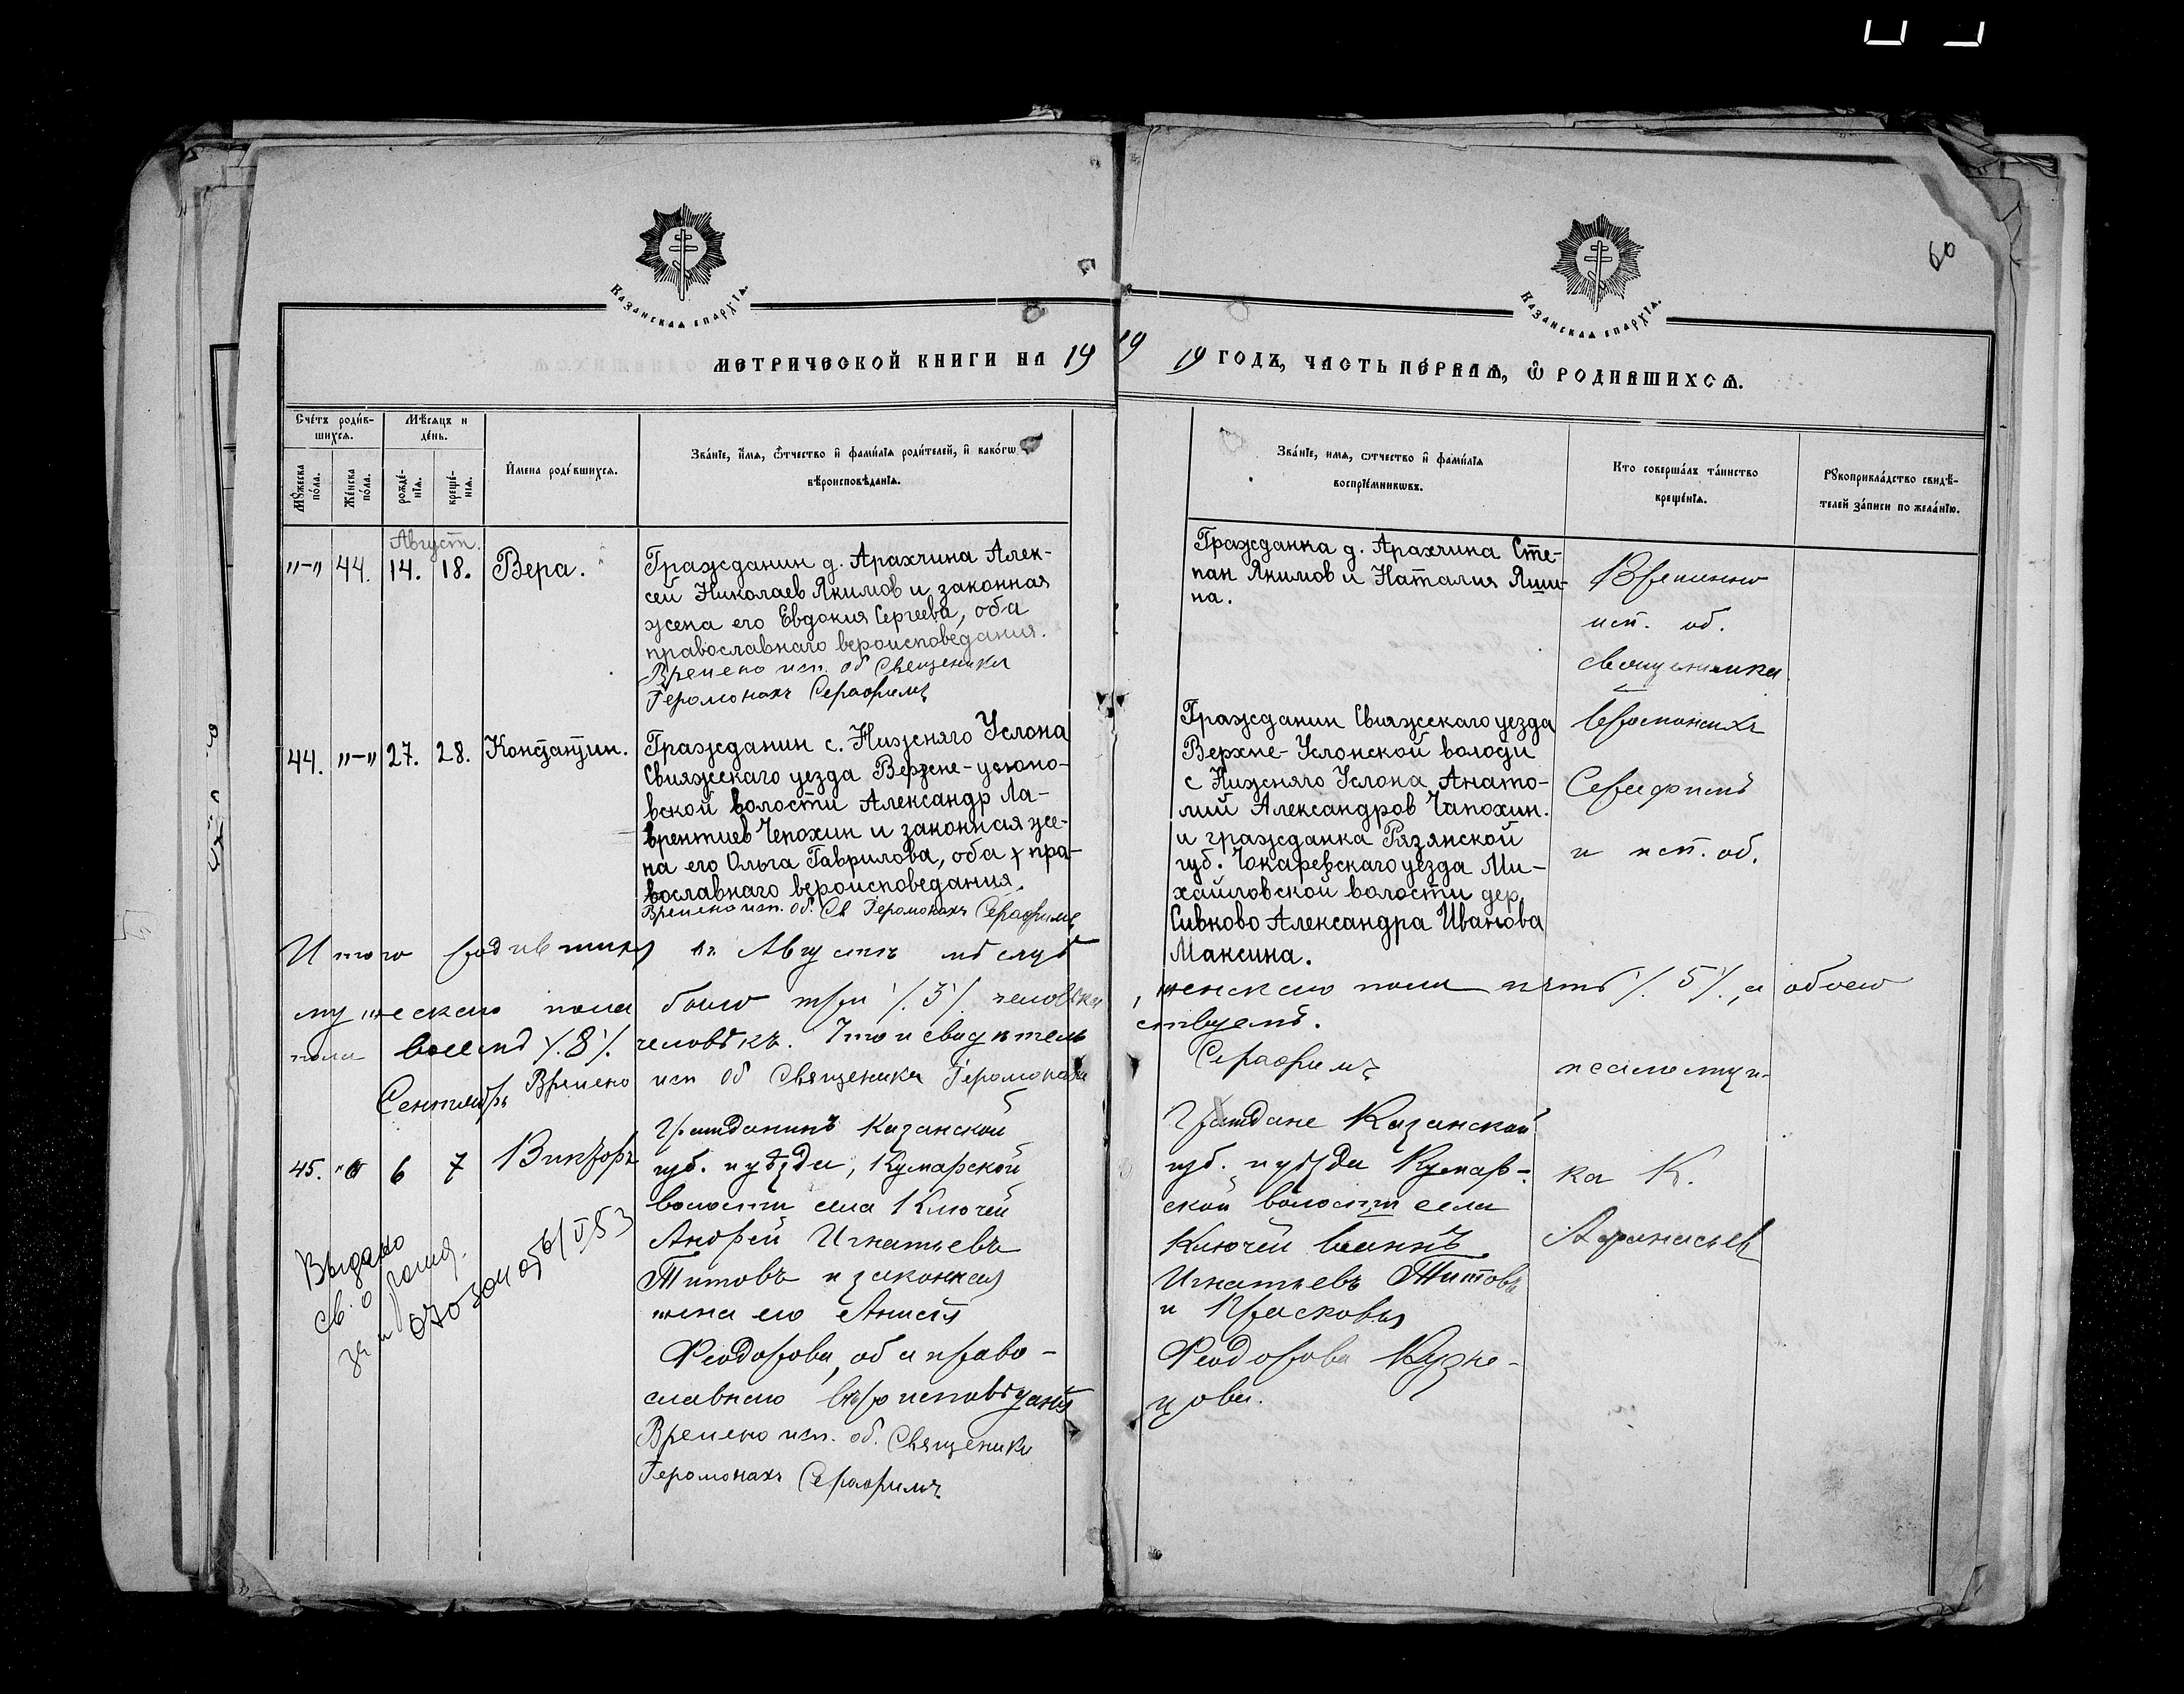 60
Казанская епархїа.
Казанская епархїа.
МЕТРИЧЕСКОЙ КНИГИ НА 1919
19 ГОДЪ, ЧАСТЬ ПЕРВАѦ, Ѿ РОДИВШИХСѦ.
Счетъ родив-
шихсѧ.
Мѣсѧцъ и
день.
Мужеска
пола.
Женска
пола.
рожде-
нїѧ.
креще-
нїѧ.
Имена родившихсѧ.
Званїе, имѧ, ѿтчество и фамилїѧ родителей, и какогѡ
вѣроисповѣданїѧ.
Званїе, имѧ, ѿтчество и фамилїѧ
воспрїемниковъ.
Кто совершалъ таинство
крещенїѧ.
Рукоприкладство свидѣ-
телей записи по желанїю.
Август.
"-" 44. 14. 18. Вера.
Гражданин д. Арахчина Алек-
сей Николаев Якимов и законная
жена его Евдокия Сергеева, оба
православнаго вероисповедания.
Времено исп. об Священика
Іеромонахъ Серафимъ
Гражданка д. Арахчина Сте-
пан Якимов и Наталия Яши-
на.
Временно
исп. об.
священника
Іеромонахъ
Серафимъ
и исп. об.
44. "-" 27. 28. Константин.
Гражданин с. Нижняго Услона
Свияжскаго уезда Верхне-услоно-
вской волости Александр Ла-
врентиев Чепохин и законная же-
на его Ольга Гаврилова, оба пра-
вославнаго вероисповедания.
Времено исп. об. Св Іеромонахъ Серафимъ
Гражданин Свияжскаго уезда
Верхне-Услонской волости
с Нижняго Услона Анато-
лий Александров Чапохин.
и гражданка Рязянской
губ. Токаревскаго уезда Ми-
хайловской волости дер.
Сивково Александра Иванова
Максина.
Итого родившихся въ Августѣ мѣсяцѣ
мужескаго пола было три /.3/. человѣка
, женскаго пола пять /.5/., а обоего
пола всего /.8/. человѣкъ. Что и свидѣтель
ствуемъ.
Времено исп об Священика Іеромонахъ
Серафимъ
псаломщи-
ка К.
Афанасьев
Сентябрь
45. "-" 6 7 Викторъ
Гражданинъ Казанской
губ. и уѣзда, Кумарской
волости села Ключей
Андрей Игнатьевъ
Титовъ и законная
жена его Анисія
Феодорова, оба право-
славнаго вѣроисповѣданія
Времено исп. об. Священика
Іеромонахъ Серафимъ
Граждане Казанской
губ. и уѣзда Кумар-
ской волости села
Ключей Іоаннъ
Игнатьевъ Титовъ
и Прасковья
Феодорова Кузне-
цова.
Выдано
св. о рожд.
за №
6/V 53